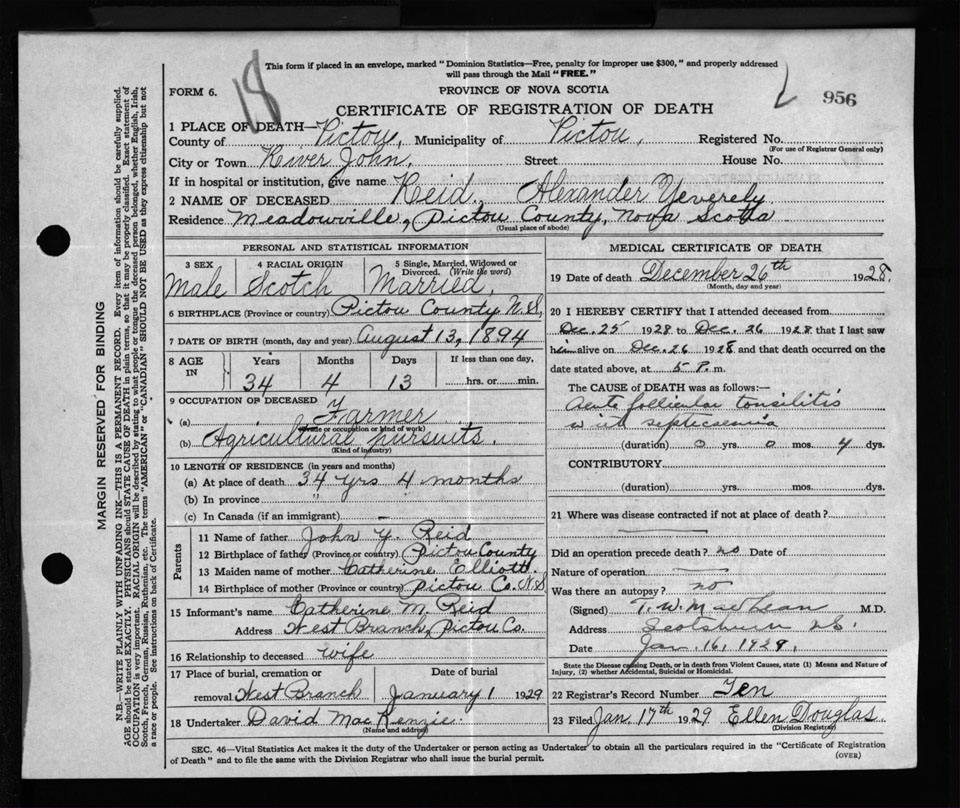 This form if placed in an envelope, marked "Dominion Statistics—Free, penalty for improper use $300," and properly addressed
will pass through the Mail "FREE."
18
2
956
FORM 6.
PROVINCE OF NOVA SCOTIA
CERTIFICATE OF REGISTRATION OF DEATH
1 PLACE OF DEATH—
County of Pictou, Municipality of Pictou, Registered No.
(For use of Registrar General only)
City or Town River John, Street House No.
If in hospital or institution, give name
2 NAME OF DECEASED Reid Alexander Yeverely
Residence Meadowville, Pictou County, Nova Scotia
(Usual place of abode)
PERSONAL AND STATISTICAL INFORMATION
3 SEX 4 RACIAL ORIGIN 5 Single, Married, Widowed or Divorced. (Write the word)
Male Scotch Married,
6 BIRTHPLACE (Province or country) Pictou County N.S,
7 DATE OF BIRTH (month, day and year) August 13, 1894
8 AGE IN Years Months Days If less than one day,
34 4 13 hrs. or min.
9 OCCUPATION OF DECEASED
(a) Farmer
(Trade or occupation or kind of work)
(b) Agricultural pursuits.
(Kind of industry)
10 LENGTH OF RESIDENCE (in years and months)
(a) At place of death 34 yrs 4 months
(b) In province " "
(c) In Canada (if an immigrant)
Parents
11 Name of father John Y. Reid
12 Birthplace of father (Province or country) Pictou County
13 Maiden name of mother Catherine Elliott.
14 Birthplace of mother (Province or country) Pictou Co. N.S
15 Informant's name Catherine M. Reid
Address West Branch, Pictou Co.
16 Relationship to deceased wife
17 Place of burial, cremation or Date of burial
removal West Branch January 1 1929
18 Undertaker David MacKenzie.
(Name and address)
MEDICAL CERTIFICATE OF DEATH
19 Date of death December 26th 1928,
(Month, day and year)
20 I HEREBY CERTIFY that I attended deceased from
Dec. 25 1928 to Dec. 26 1928 that I last saw
him alive on Dec. 26 1928 and that death occurred on the
date stated above, at 5 P. m.
The CAUSE OF DEATH was as follows:—
Acute follicular tonsilitis
with septicaemia
(duration) 0 yrs. 0 mos. 4 dys.
CONTRIBUTORY
(duration) yrs. mos. dys.
21 Where was disease contracted if not at place of death?
Did an operation precede death? no Date of
Nature of operation
Was there an autopsy? no
(Signed) T. W. MacLean M.D.
Address Scotsburn N.S.
Date Jan. 16, 1929.
State the Disease causing Death, or in death from Violent Causes, state (1) Means and Nature of
Injury, (2) whether Accidental, Suicidal or Homicidal.
22 Registrar's Record Number Ten
23 Filed Jan 17th 1929 Ellen Douglas
(Division Registrar)
SEC. 46—Vital Statistics Act makes it the duty of the Undertaker or person acting as Undertaker to obtain all the particulars required in the "Certificate of Registration
of Death" and to file the same with the Division Registrar who shall issue the burial permit.
(OVER)
MARGIN RESERVED FOR BINDING
N.B.—WRITE PLAINLY WITH UNFADING INK—THIS IS A PERMANENT RECORD. Every item of information should be carefully supplied.
AGE should be stated EXACTLY. PHYSICIANS should STATE CAUSE OF DEATH in plain terms, so that it may be properly classified. Exact statement of
OCCUPATION is very important. RACIAL ORIGIN will be described by stating to what people or tongue the deceased person belonged, whether English, Irish,
Scotch, French, German, Russian, Ruthenian, etc. The terms "AMERICAN" or "CANADIAN" SHOULD NOT BE USED as they express citizenship but not
a race or people. See instructions on back of Certificate.